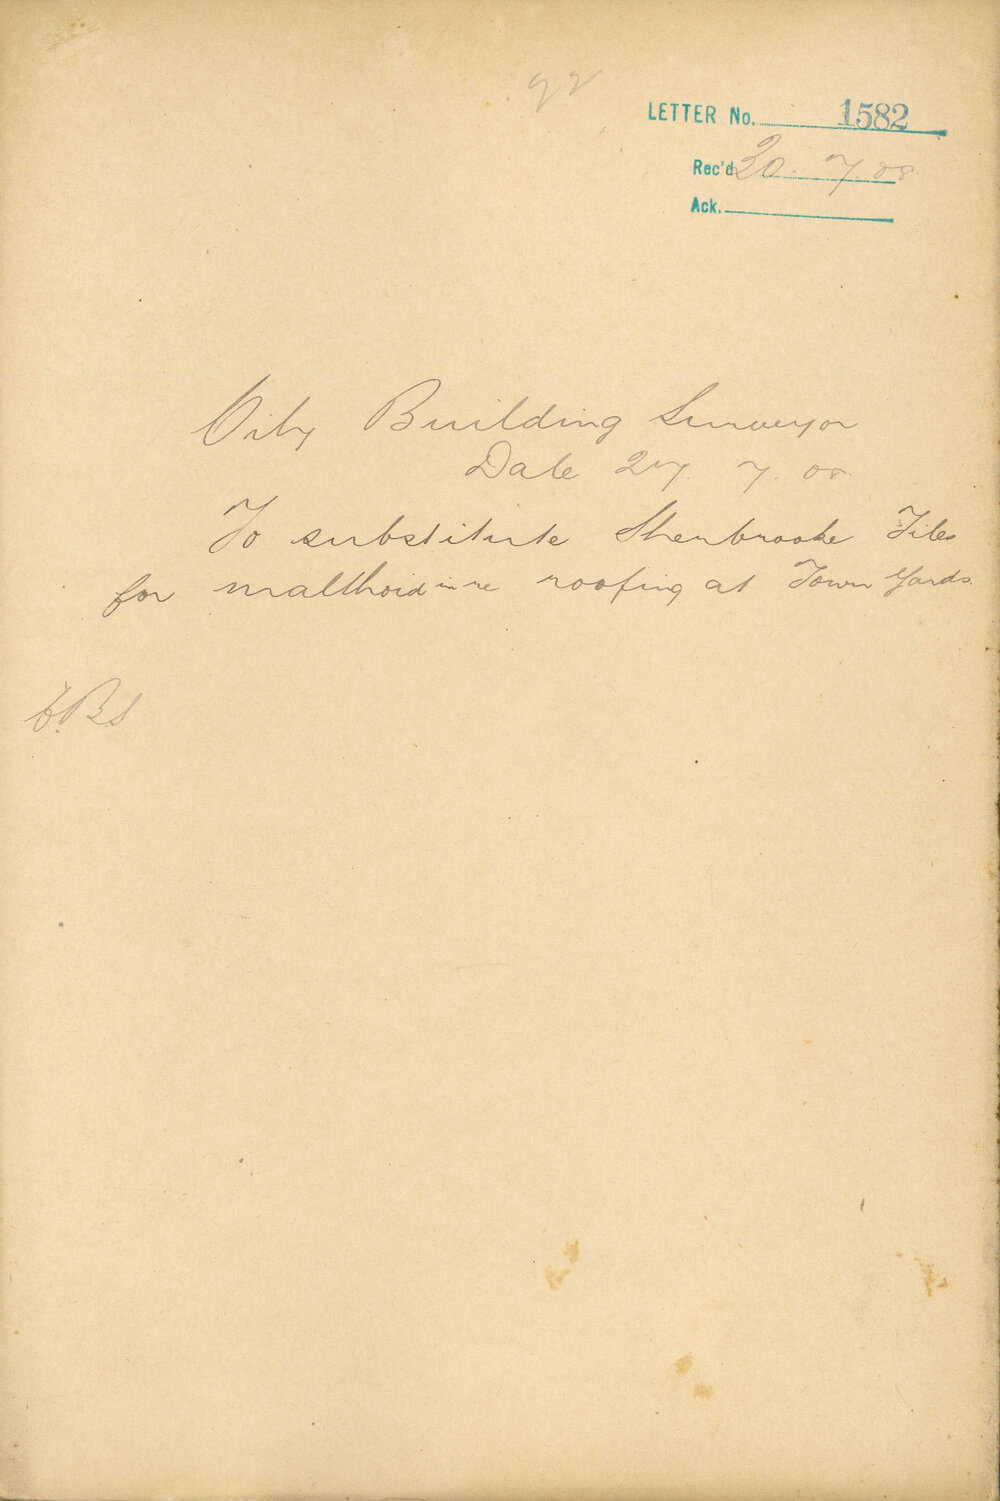 92
LETTER No. 1582
Rec'd 30. 7. 08.
Ack.
City Building Surveyor
Date 27. 7. 08.
To substitute Sherbrooke Tiles
for malthoid in re roofing at Town Yards.
C.B.S